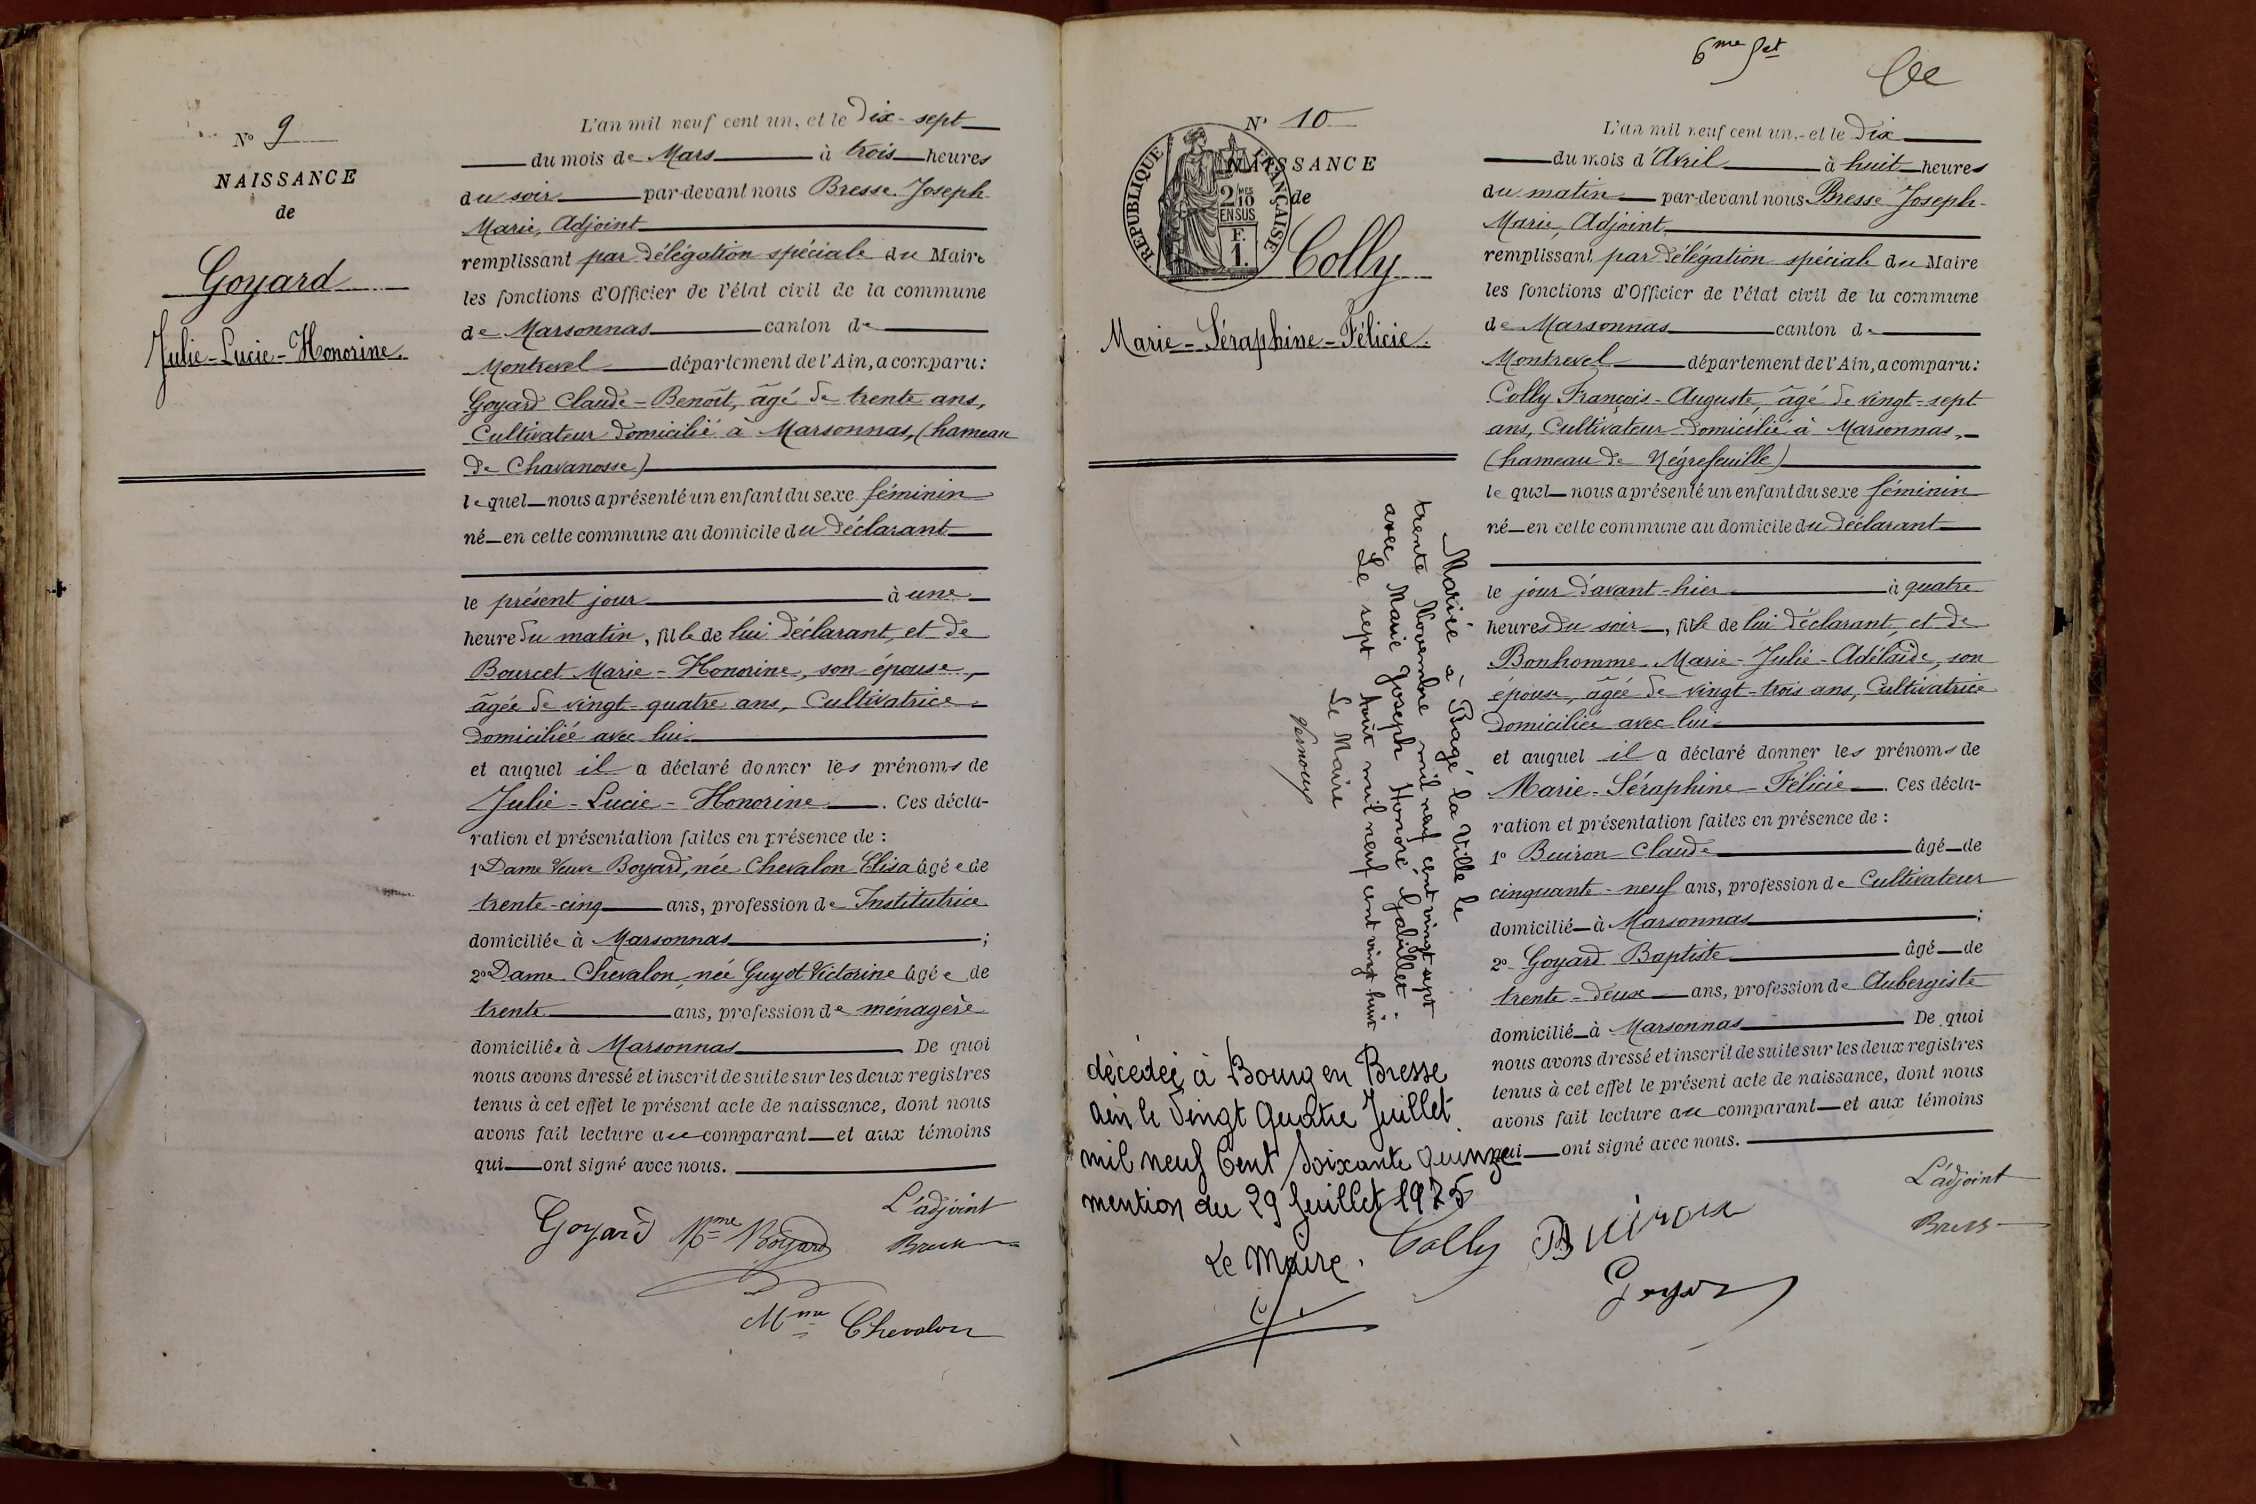 N° 9
NAISSANCE
de
Goyard
Julie-Lucie-Honorine.
L'an mil neuf cent un, et le dix-sept
du mois de Mars à trois heures
du soir par-devant nous Bresse Joseph-
Marie, Adjoint
remplissant par délégation spéciale du Maire
les fonctions d'Officier de l'état civil de la commune
de Marsonnas canton de
Montrevel département de l'Ain, a comparu:
Goyard Claude-Benoît, âgé de trente ans,
Cultivateur domicilié à Marsonnas, (hameau
de Chavanosse)
le quel nous a présenté un enfant du sexe féminin
né en cette commune au domicile du déclarant
le présent jour à une
heure du matin, fille de lui déclarant, et de
Bourcet Marie-Honorine, son épouse,
âgée de vingt-quatre ans, Cultivatrice
domiciliée avec lui
et auquel il a déclaré donner les prénoms de
Julie-Lucie-Honorine. Ces décla-
ration et présentation faites en présence de:
1° Dame Veuve Boyard, née Chevalon Elisa âgée de
trente-cinq ans, profession de Institutrice
domiciliée à Marsonnas;
2° Dame Chevalon, née Guyot Victorine âgée de
trente ans, profession de ménagère
domiciliée à Marsonnas De quoi
nous avons dressé et inscrit de suite sur les deux registres
tenus à cet effet le présent acte de naissance, dont nous
avons fait lecture au comparant et aux témoins
qui ont signé avec nous.
L'adjoint
Goyard Mme Boyard Bresse
Mme Chevalon
6me
N° 10
NAISSANCE
de
RÉPUBLIQUE FRANÇAISE
2 MES 10
EN SUS
F.
1.
Colly
Marie-Séraphine-Félicie.
L'an mil neuf cent un, et le dix
du mois d'Avril à huit heures
du matin par-devant nous Bresse Joseph-
Marie, Adjoint
remplissant par délégation spéciale du Maire
les fonctions d'Officier de l'état civil de la commune
de Marsonnas canton de
Montrevel département de l'Ain, a comparu:
Colly François-Auguste, âgé de vingt-sept
ans, Cultivateur domicilié à Marsonnas,
(hameau de Négrefeuille)
le quel nous a présenté un enfant du sexe féminin
né en cette commune au domicile du déclarant
le jour d'avant-hier à quatre
heures du soir, fille de lui déclarant, et de
Bonhomme Marie-Julie-Adélaïde, son
épouse, âgée de vingt-trois ans, Cultivatrice
domiciliée avec lui
et auquel il a déclaré donner les prénoms de
Marie-Séraphine-Félicie. Ces décla-
ration et présentation faites en présence de:
1° Buiron Claude âgé de
cinquante-neuf ans, profession de Cultivateur
domicilié à Marsonnas;
2° Goyard Baptiste âgé de
trente-deux ans, profession de Aubergiste
domicilié à Marsonnas De quoi
nous avons dressé et inscrit de suite sur les deux registres
tenus à cet effet le présent acte de naissance, dont nous
avons fait lecture au comparant et aux témoins
qui ont signé avec nous.
L'adjoint
Colly Buiron Bresse
Goyard
Mariée à Bagé la Ville le
trente Novembre mil neuf cent vingt sept
avec Marie Joseph Honoré Gabillet.
Le sept huit mil neuf cent vingt huit
Le Maire
décédée à Bourg en Bresse
ain le Vingt Quatre Juillet
mil neuf Cent Soixante quinze
mention du 29 Juillet 1975
Le Maire.